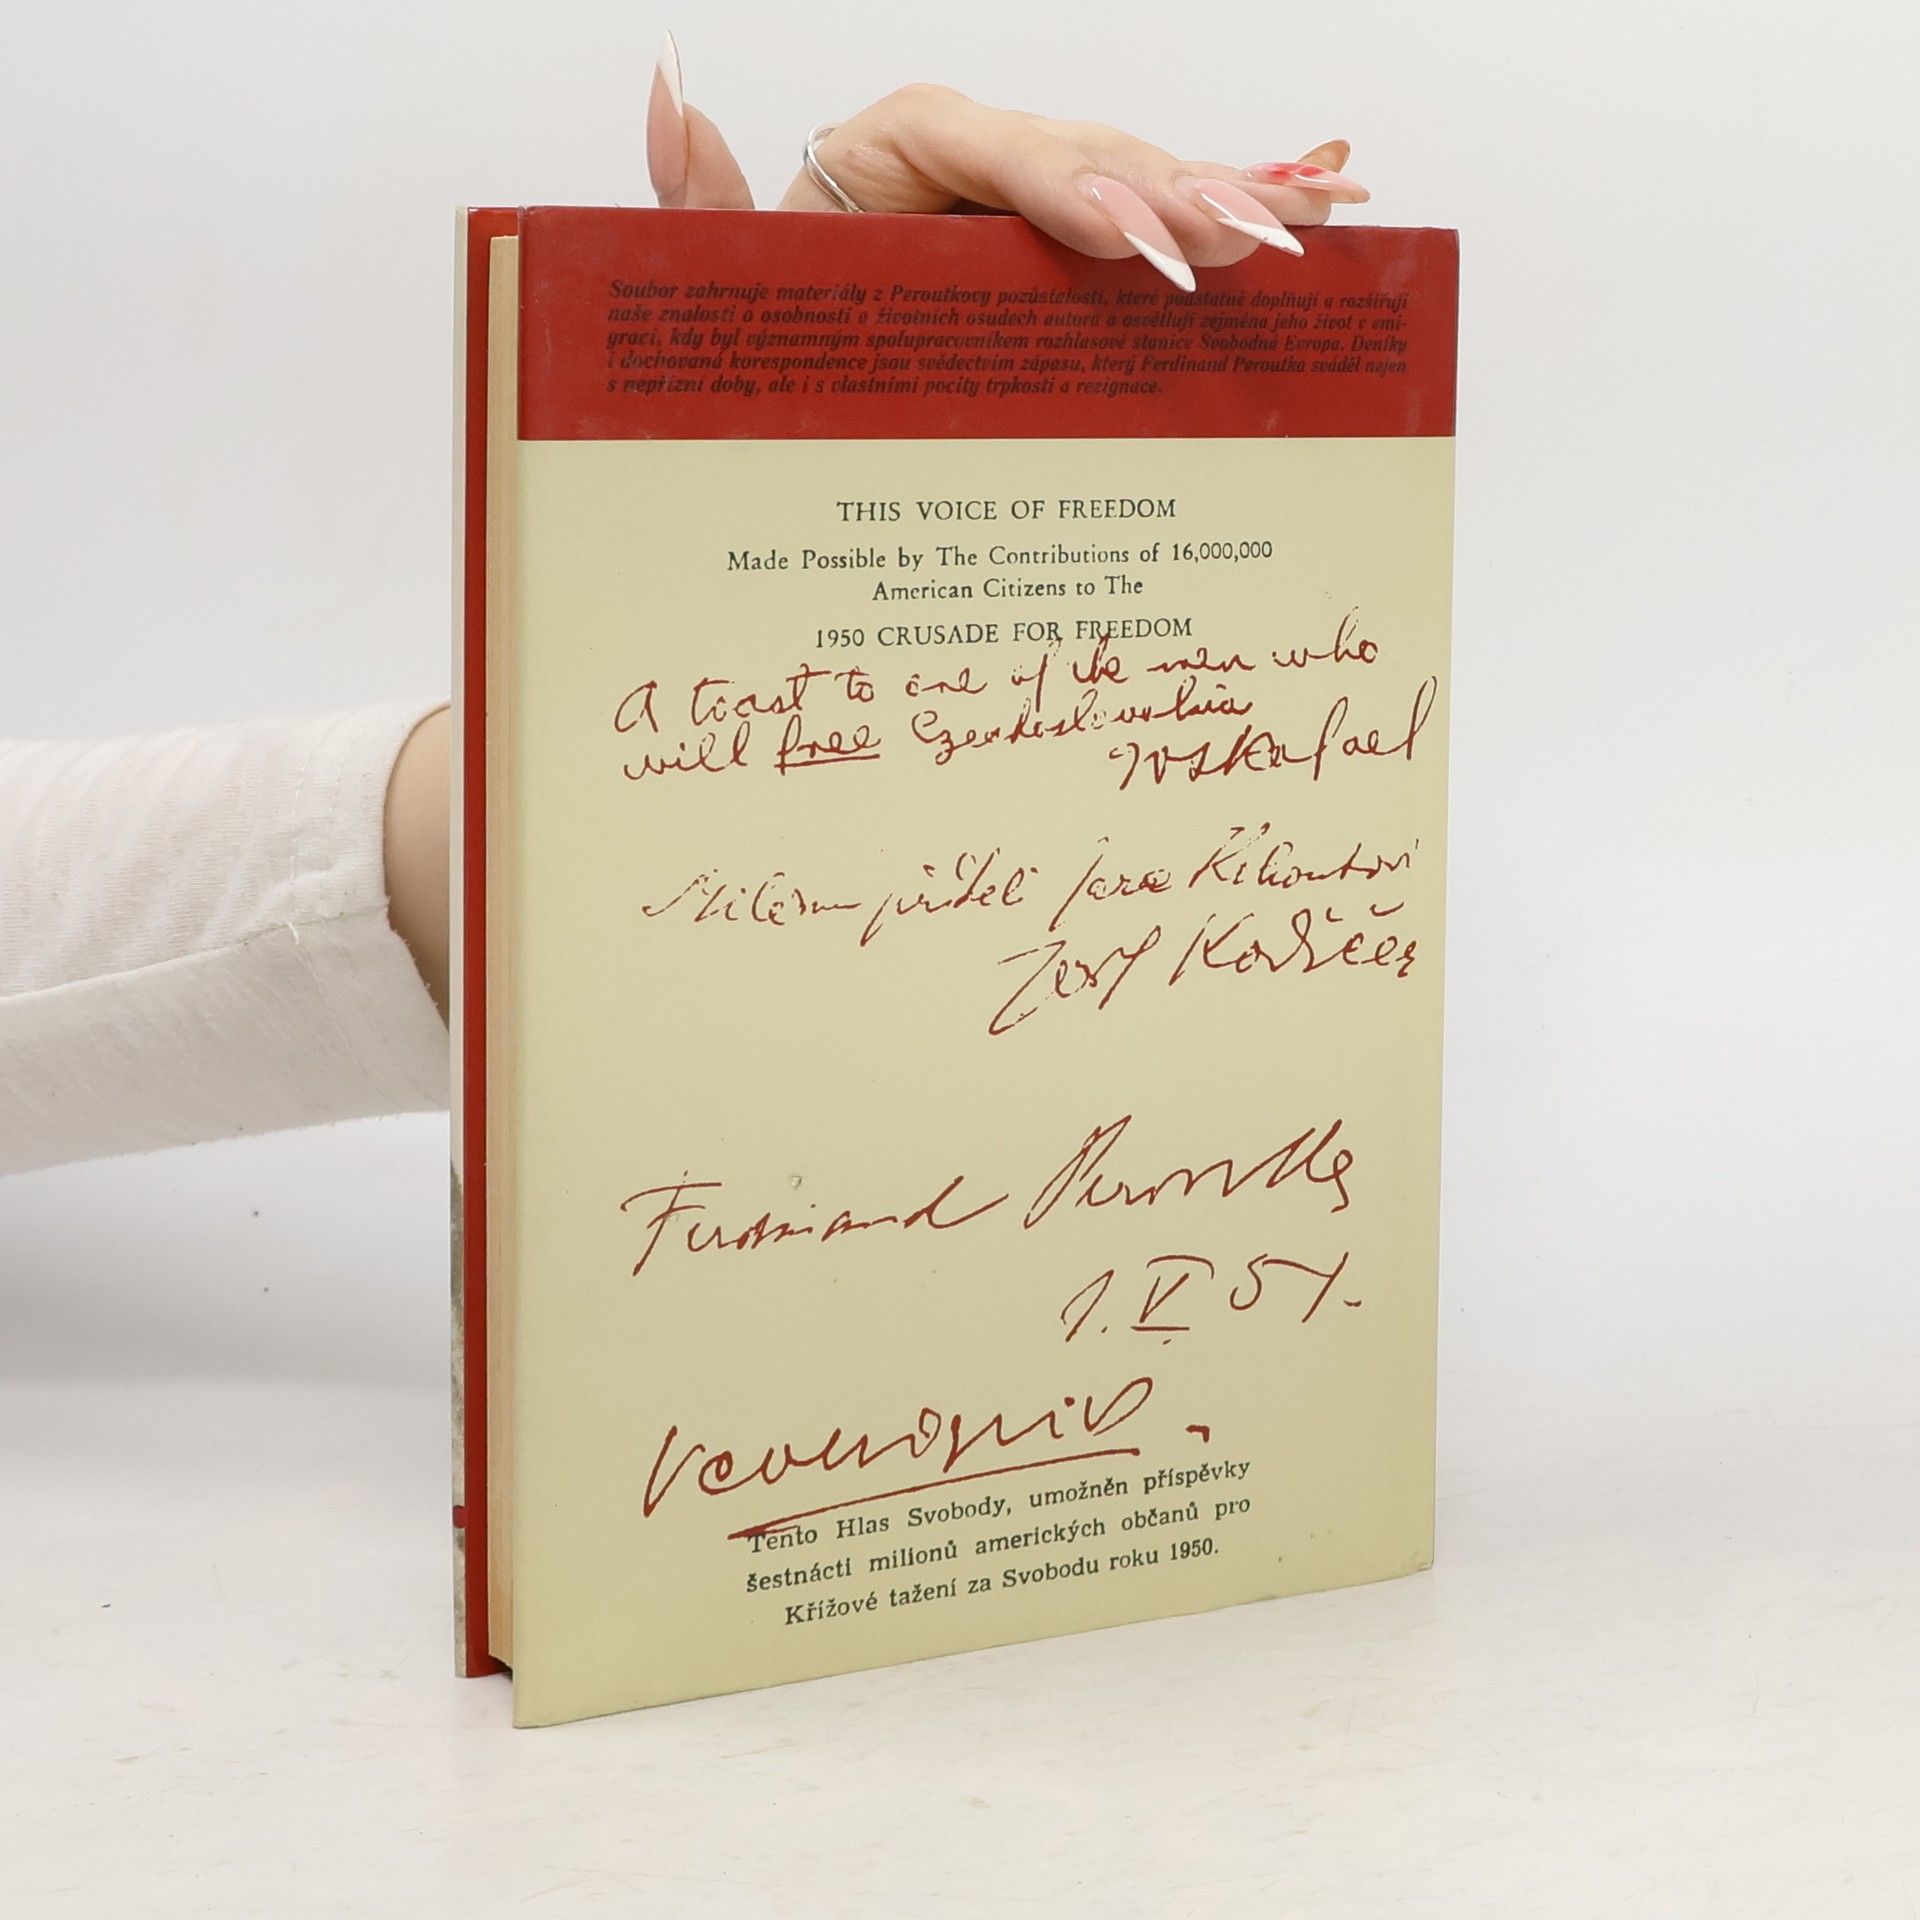 Soubor zahrnuje materiály z Peroutkovy pozůstalosti, které podstatně doplňují a rozšiřují
naše znalosti o osobnosti a životních osudech autora a osvětlují zejména jeho život v emi-
graci, kdy byl významným spolupracovníkem rozhlasové stanice Svobodná Evropa. Deníky
i dochovaná korespondence jsou svědectvím zápasu, který Ferdinand Peroutka sváděl nejen
s nepřízní doby, ale i s vlastními pocity trpkosti a rezignace.
THIS VOICE OF FREEDOM
Made Possible by The Contributions of 16,000,000
American Citizens to The
1950 CRUSADE FOR FREEDOM
A toast to one of the men who
will free Czechoslovakia
Josef
Ferdinand Peroutka
1. V. 51.
Tento Hlas Svobody, umožněn příspěvky
šestnácti milionů amerických občanů pro
Křížové tažení za Svobodu roku 1950.